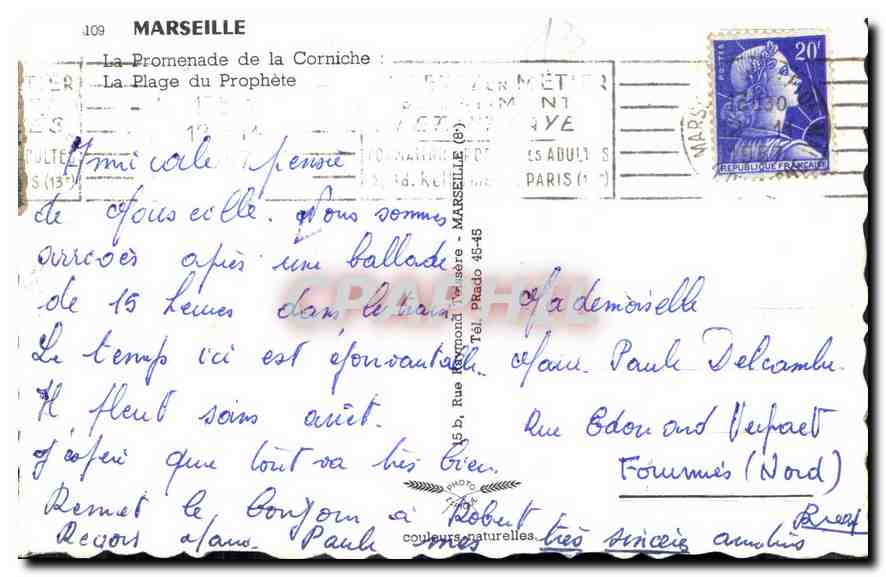 109 MARSEILLE
La Promenade de la Corniche :
La Plage du Prophète
20F
POSTES
REPUBLIQUE FRANÇAISE
MÉTIER
FORMATION ADULTES
PARIS
Amicale pensée
de Marseille. Nous sommes
arrivés après une ballade
de 15 heures dans le train
Le temps ici est épouvantable.
Il pleut sans arrêt.
J'espère que tout va très bien.
Remet le bonjour à Robert
Reçois Marie Paule mes très sincères amitiés
Mademoiselle
Marie. Paule Delcambre
Rue Edouard
Fourmies (Nord)
15 b, Rue Raymond Teissère - MARSEILLE (8e)
Tél. PRado 45-45
PHOTO
couleurs naturelles
CPAPHIL